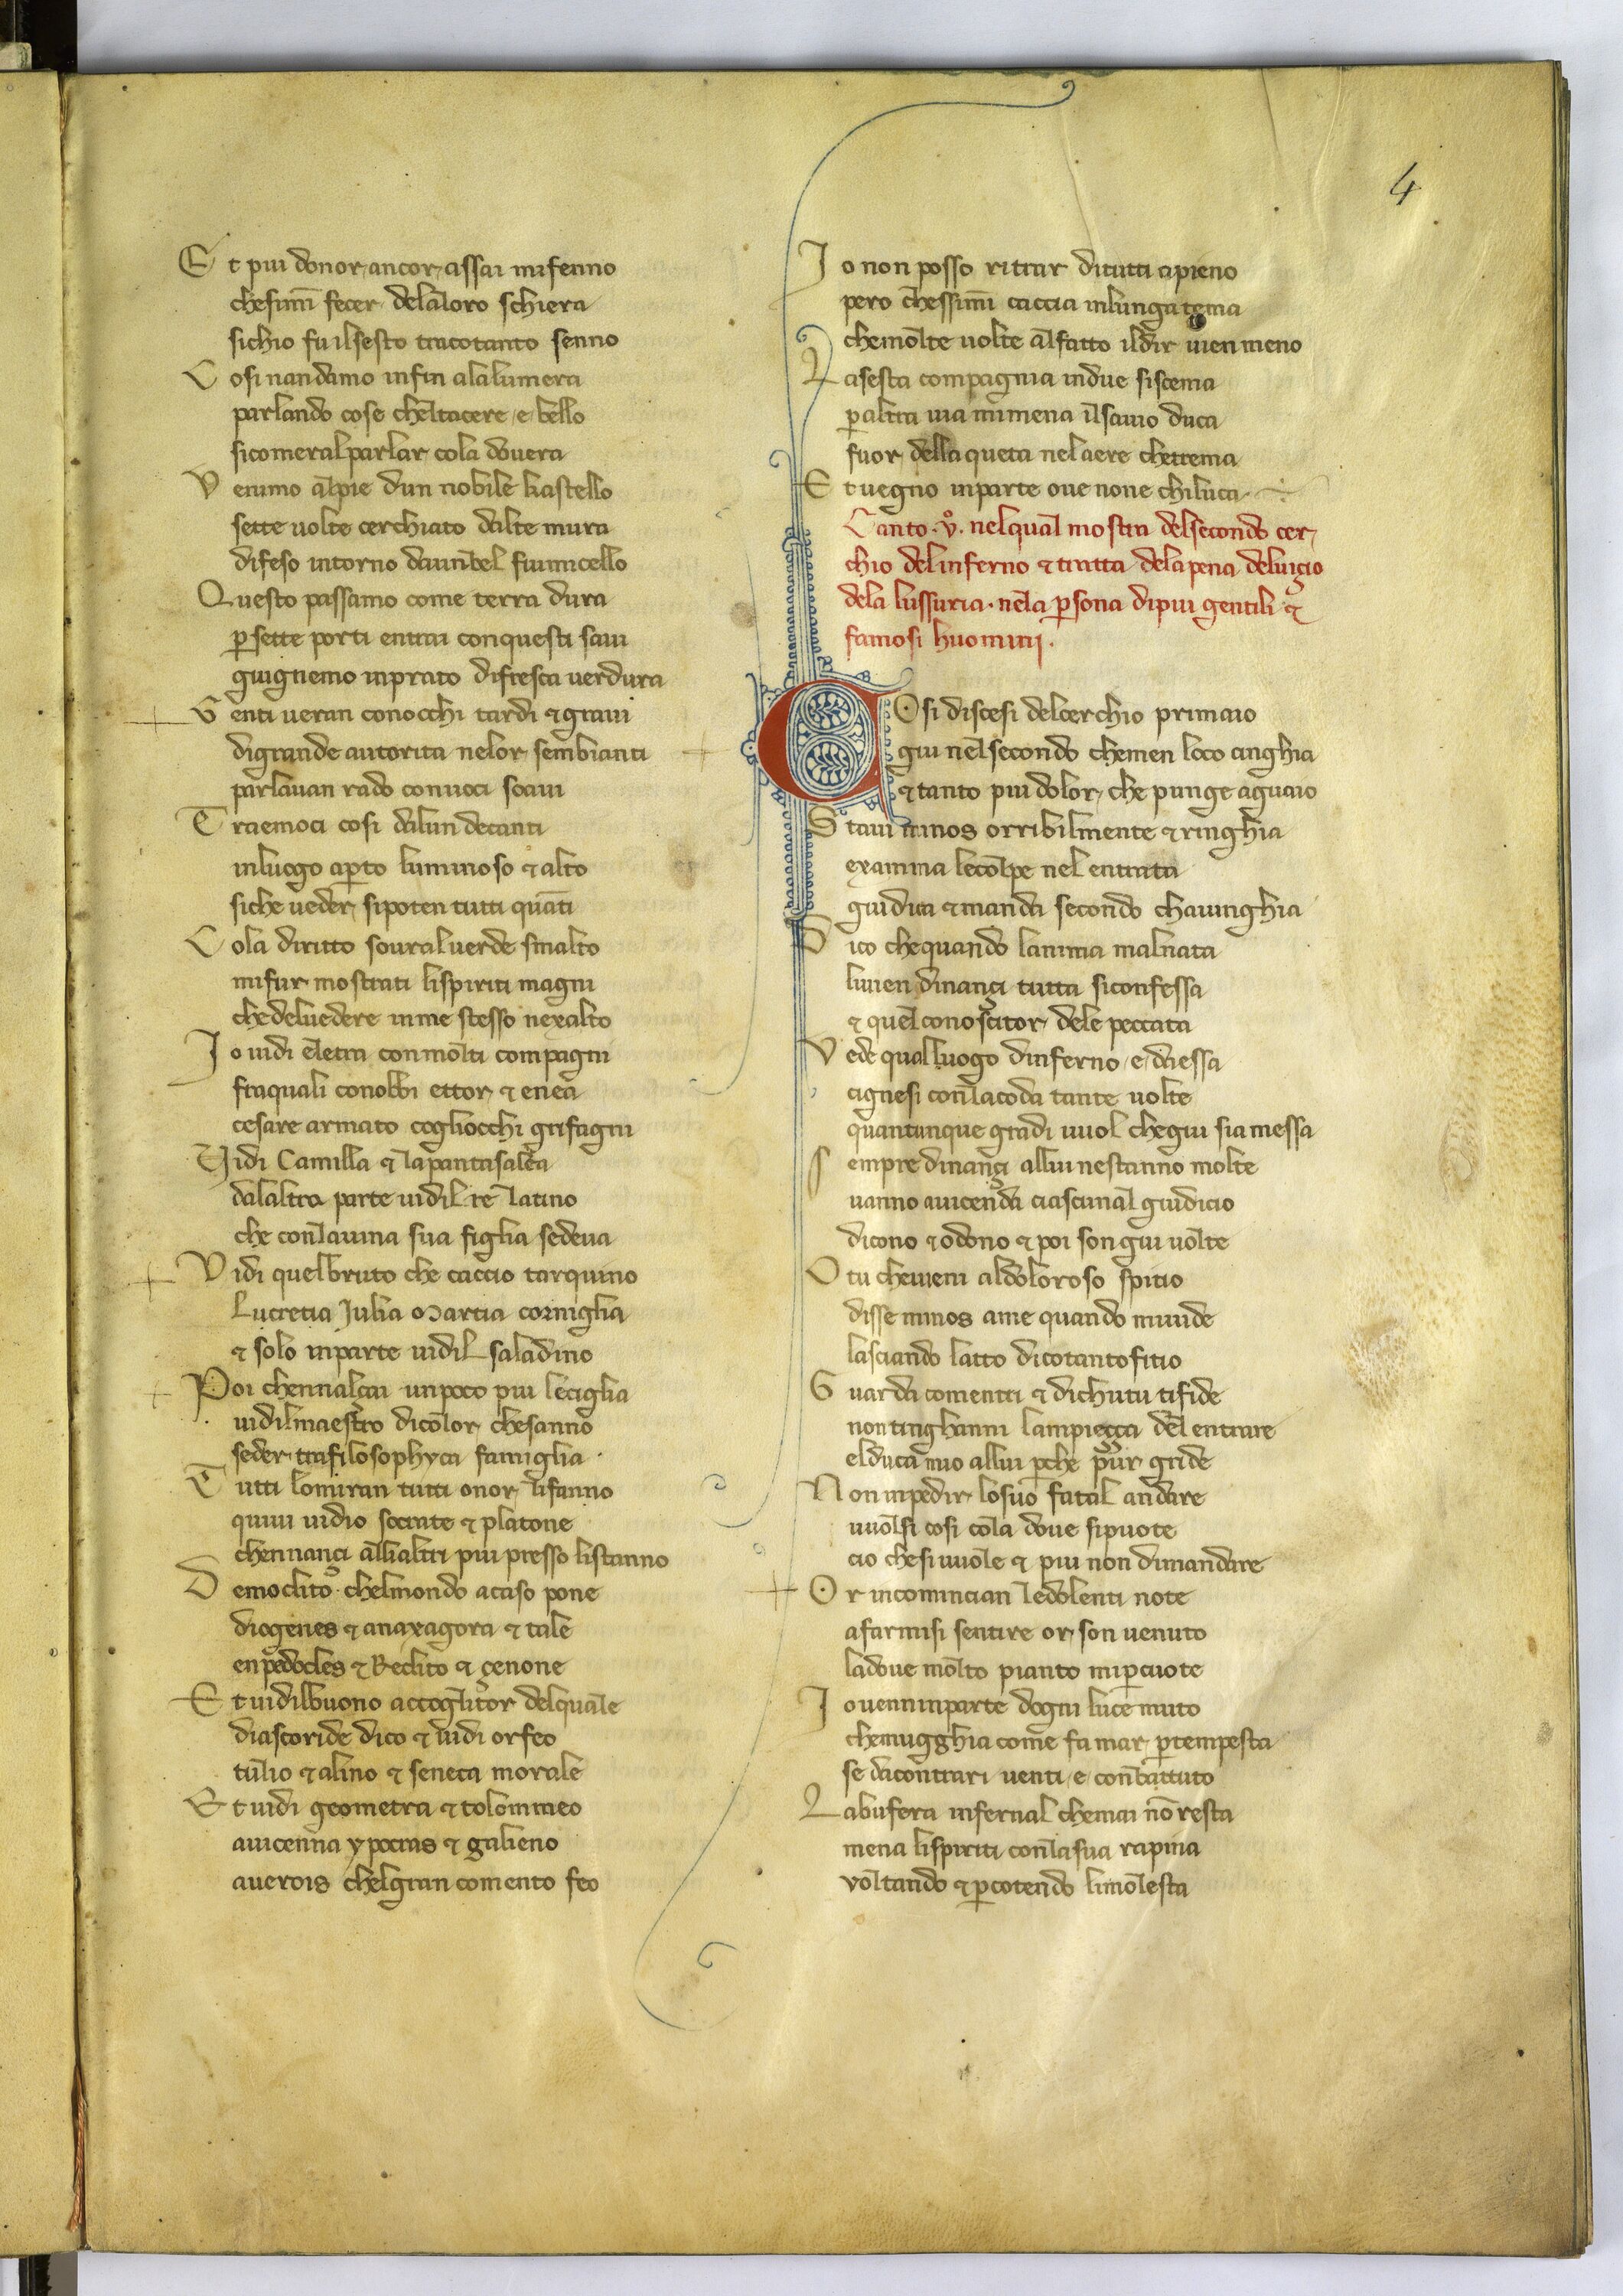 4
Et piu donor ancor assai mi fenno
chesimi fecer dela loro schiera
sichio fu il sesto tra cotanto senno
Cosi nandamo infin ala lumera
parlando cose chel tacere e bello
sicomeral parlar cola dovera
Venimo al pie dun nobile kastello
sette uolte cerchiato dalte mura
difeso intorno daun bel fiumicello
Questo passamo come terra dura
p sette porti entrai con questi saui
giugnemo in prato di fresca uerdura
Genti ueran conocchi tardi & graui
di grande autorita nelor sembianti
parlauan rado con uoci soaui
Traemoci cosi dalun de canti
in luogo apto luminoso & alto
siche ueder si poten tutti quāti
Cola diritto soural uerde smalto
mi fur mostrati li spiriti magni
che del uedere in me stesso nexalto
Io uidi eletra con molti compagni
fra quali conobbi ettor & enea
cesare armato co gliocchi grifagni
Vidi Camilla & la pantasalea
dalaltra parte uidil re latino
che con lauina sua figlia sedeua
Vidi quel bruto che caccio tarquino
Lucretia Julia Martia corniglia
& solo inparte uidil saladino
Poi chennalçai un poco piu le ciglia
uidil maestro di color che sanno
seder tra filosophyca famiglia
Tutti lo miran tutti onor li fanno
quiui uidio socrate & platone
chennançi alli altri piu presso li stanno
Democlito chel mondo a caso pone
diogenes & anaxagora & tale
enpedocles & Reclito & çenone
Et uidil buono accoglitor del quale
diascoride dico & uidi orfeo
tulio & alino & seneca morale
Et uidi geometra & tolommeo
auicenna ypocras & galieno
auerois chel gran comento feo
Io non posso ritrar di tutti apieno
pero chessimi caccia in lunga tema
che molte uolte al fatto il dir uien meno
La sesta compagnia in due si scema
p altra uia mi mena il sauio duca
fuor della queta nel aere che trema
Et uegno in parte oue none chi luca
Canto .v°. nel qual mostra del secondo cer
chio del inferno & tratta dela pena del uiçio
dela lussuria. nela psona di piu gentili &
famosi huomini.
COsi discesi del cerchio primaio
giu nel secondo che men loco cinghia
& tanto piu dolor che punge a guaio
Staui minos orribilmente & ringhia
examina le colpe nel entrata
giudica & manda secondo chauinghia
Dico che quando lanima mal nata
li uien dinançi tutta si confessa
& quel conoscitor dele peccata
Vede qual luogo dinferno e da essa
cignesi con la coda tante uolte
quantunque gradi uuol che giu sia messa
Sempre dinançi allui nestanno molte
uanno auicenda ciascunal giudicio
dicono & odono & poi son giu uolte
O tu che uieni al doloroso spitio
disse minos a me quando mi uide
lasciando latto di cotanto fitio
Guarda comentri & di chui tu ti fide
non tinghanni lampieçça del entrare
el duca mio allui pche pur gride
Non inpedir lo suo fatal andare
uuolsi cosi cola doue si puote
cio che si uuole & piu non dimandare
Or incomincian le dolenti note
a farmisi sentire or son uenuto
la doue molto pianto mi pcuote
Io uenni inparte dogni luce muto
che mugghia come fa mar p tempesta
se da contrari uenti e conbattuto
La bufera infernal che mai nō resta
mena li spiriti con la sua rapina
voltando & pcotendo li molesta